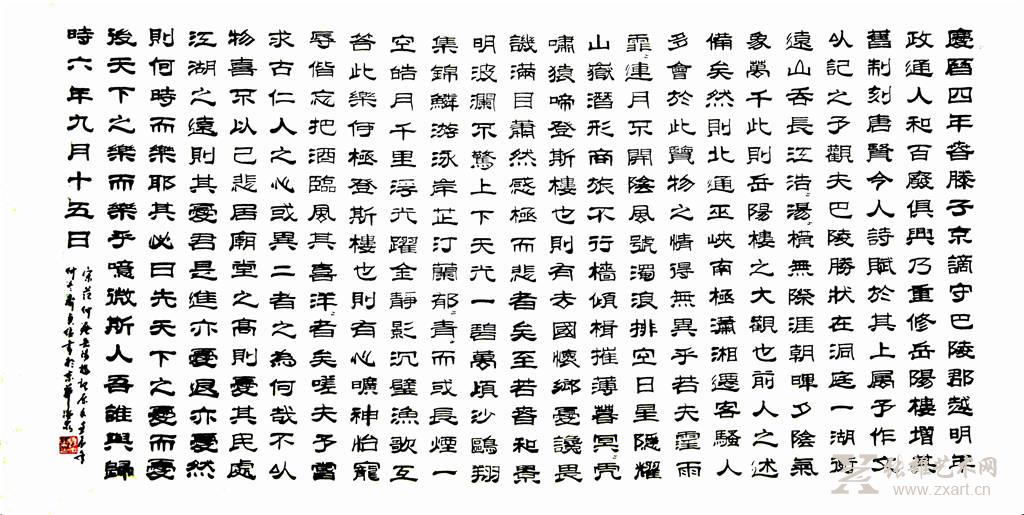 慶曆四年春滕子京謫守巴陵郡越明年
政通人和百廢俱興乃重修岳陽樓增其
舊制刻唐賢今人詩賦於其上屬予作文
以記之予觀夫巴陵勝狀在洞庭一湖銜
遠山吞長江浩〻湯〻橫無際涯朝暉夕陰氣
象萬千此則岳陽樓之大觀也前人之述
備矣然則北通巫峽南極瀟湘遷客騷人
多會於此覽物之情得無異乎若夫霪雨
霏〻連月不開陰風號濁浪排空日星隱耀
山嶽潛形商旅不行檣傾楫摧薄暮冥〻虎
嘯猿啼登斯樓也則有去國懷鄉憂讒畏
譏滿目蕭然感極而悲者矣至若春和景
明波瀾不驚上下天光一碧萬頃沙鷗翔
集錦鱗游泳岸芷汀蘭郁〻青〻而或長煙一
空皓月千里浮光躍金靜影沉璧漁歌互
答此樂何極登斯樓也則有心曠神怡寵
辱偕忘把酒臨風其喜洋〻者矣嗟夫予嘗
求古仁人之心或異二者之為何哉不以
物喜不以己悲居廟堂之高則憂其民處
江湖之遠則其憂君是進亦憂退亦憂然
則何時而樂耶其必曰先天下之憂而憂
後天下之樂而樂乎噫微斯人吾誰與歸
時六年九月十五日
宋范仲淹岳陽樓記
张雄艺术网
www.zxart.cn